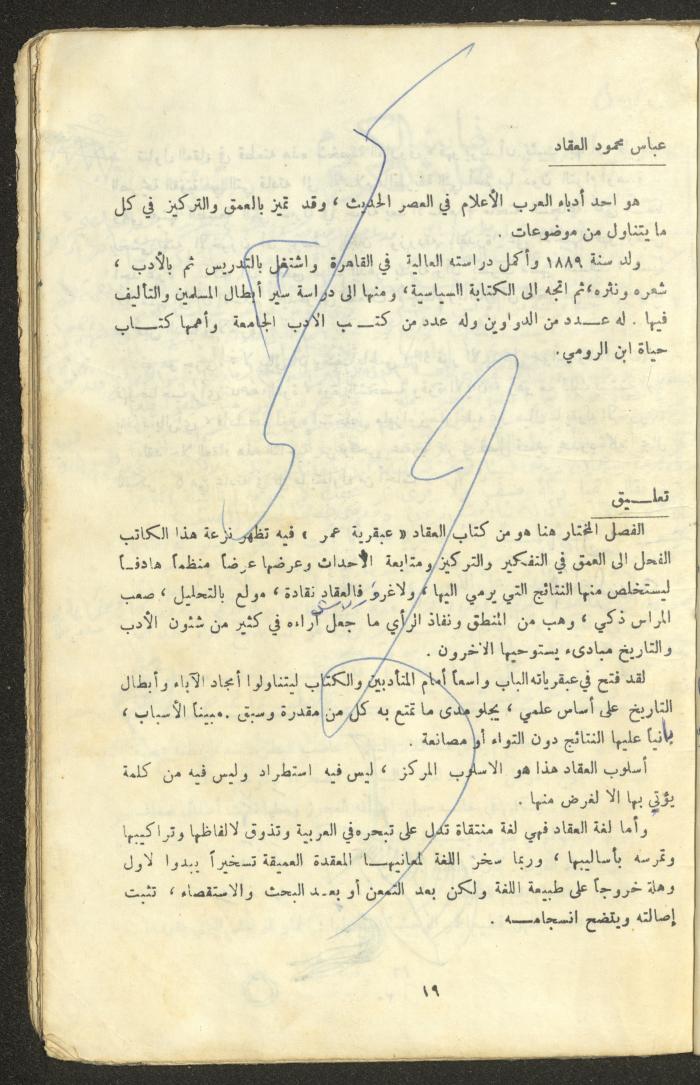 عباس محمود العقاد
هو احد أدباء العرب الأعلام في العصر الحديث ، وقد تميز بالعمق والتركيز في كل
ما يتناول من موضوعات .
ولد سنة ١٨٨٩ وأكمل دراسته العالية في القاهرة واشتغل بالتدريس ثم بالأدب ،
شعره ونثره ، ثم اتجه الى الكتابة السياسية ، ومنها الى دراسة سير أبطال المسلمين والتأليف
فيها . له عـــدد من الدواوين وله عدد من كتـــب الادب الجامعة وأهمها كتـــاب
حياة ابن الرومي .
تعلـــيق
الفصل المختار هنا هو من كتاب العقاد « عبقرية عمر » فيه تظهر نزعة هذا الكاتب
الفحل الى العمق في التفكير والتركيز ومتابعة الاحداث وعرضها عرضاً منظماً هادفـاً
ليستخلص منها النتائج التي يرمي اليها ، ولاغرو فالعقاد نقادة ، مولع بالتحليل ، صعب
المراس ذكي ، وهب من المنطق ونفاذ الرأي ما جعل آراءه في كثير من شئون الأدب
والتاريخ مبادىء يستوحيها الاخرون .
لقد فتح في عبقرياته الباب واسعاً أمام المتأدبين والكتاب ليتناولوا أمجاد الآباء وأبطال
التاريخ على أساس علمي ، يجلو مدى ما تمتع به كل من مقدرة وسبق . مبيناً الأسباب ،
بانياً عليها النتائج دون التواء أو مصانعة .
أسلوب العقاد هذا هو الاسلوب المركز ، ليس فيه استطراد وليس فيه من كلمة
يؤتي بها الا لغرض منها .
وأما لغة العقاد فهي لغة منتقاة تدل على تبحره في العربية وتذوق لالفاظها وتراكيبها
وتمرسه بأساليبها ، وربما سخر اللغة لمعانيهـــا المعقدة العميقة تسخيراً يبدوا لاول
وهلة خروجاً على طبيعة اللغة ولكن بعد التمعن أو بعـد البحث والاستقصاء ، تثبت
إصالته ويتضح انسجامـــه .
١٩